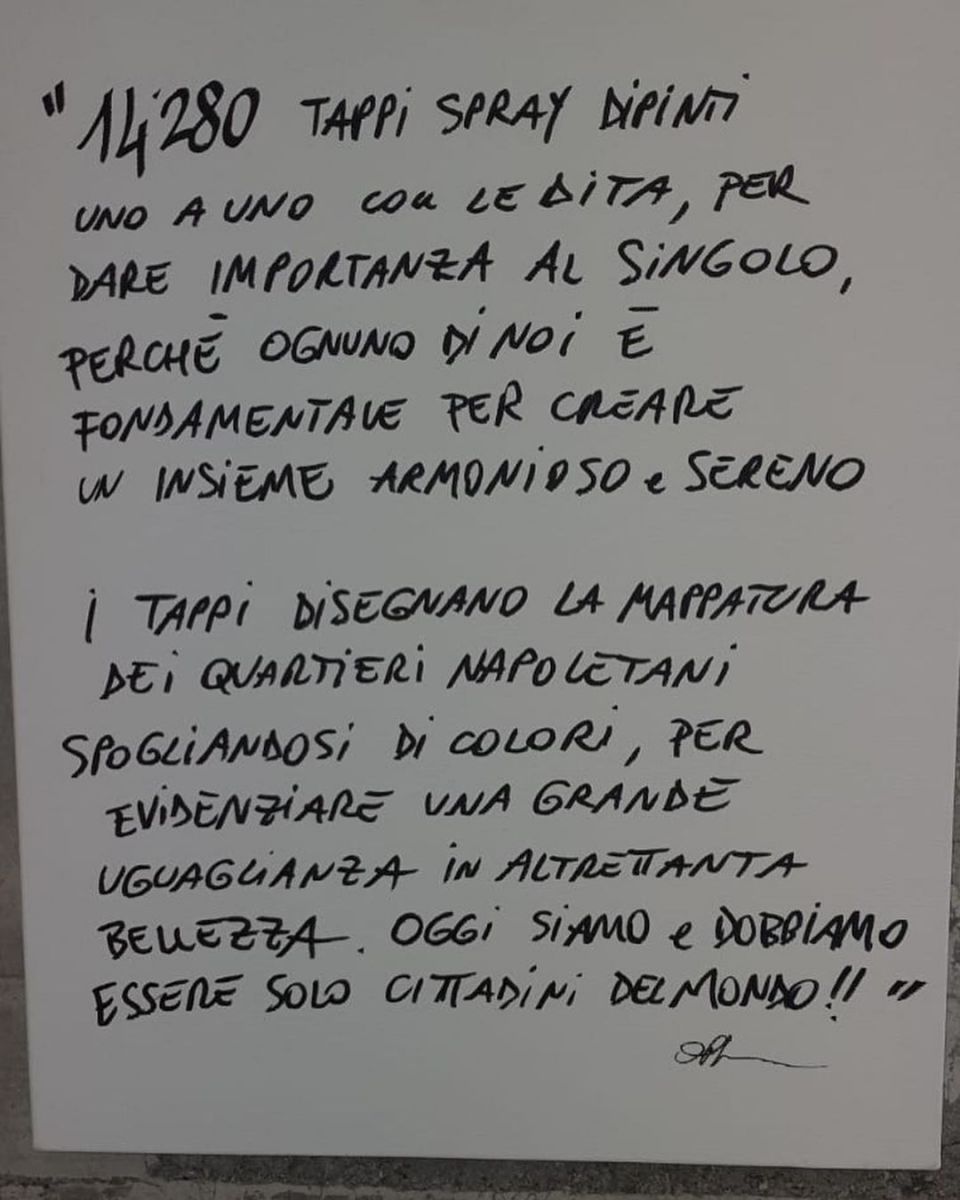 "14'280 TAPPi SPRAY DiPiNTi
UNO A UNO con LE DiTA, PER
DARE IMPORTANZA AL SiNGOLO,
PERCHĒ OGNUNO Di NOi Ē
FONDAMENTALE PER CREARE
UN INSiEME ARMONiOSO e SERENO
i TAPPi DiSEGNANO LA MAPPATURA
DEi QUARTiERi NAPOLETANi
SPOGLiANDOSi Di COLORi, PER
EViDENZiARE UNA GRANDE
UGUAGLiANZA iN ALTRETTANTA
BELLEZZA. OGGi SiAMO e DOBBiAMO
ESSERE SOLO CiTTADiNi DEL MONDO!! "